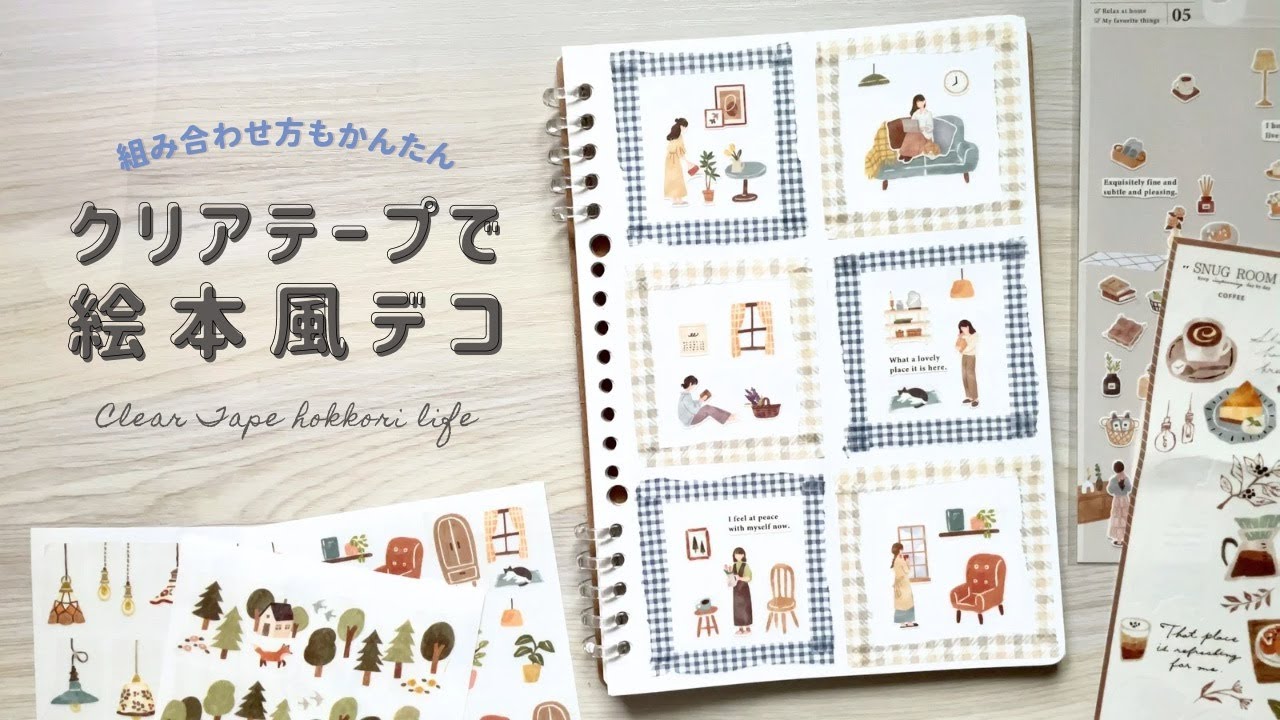 組み合わせ方もかんたん
クリアテープで
絵本風デコ
Clear Tape hokkori life
What a lovely
place it is here.
I feel at peace
with myself now.
Relax at home
My favorite things
05
Exquisitely fine and
subtle and pleasing.
SNUG ROOM
COFFEE
That place
is refreshing
for me